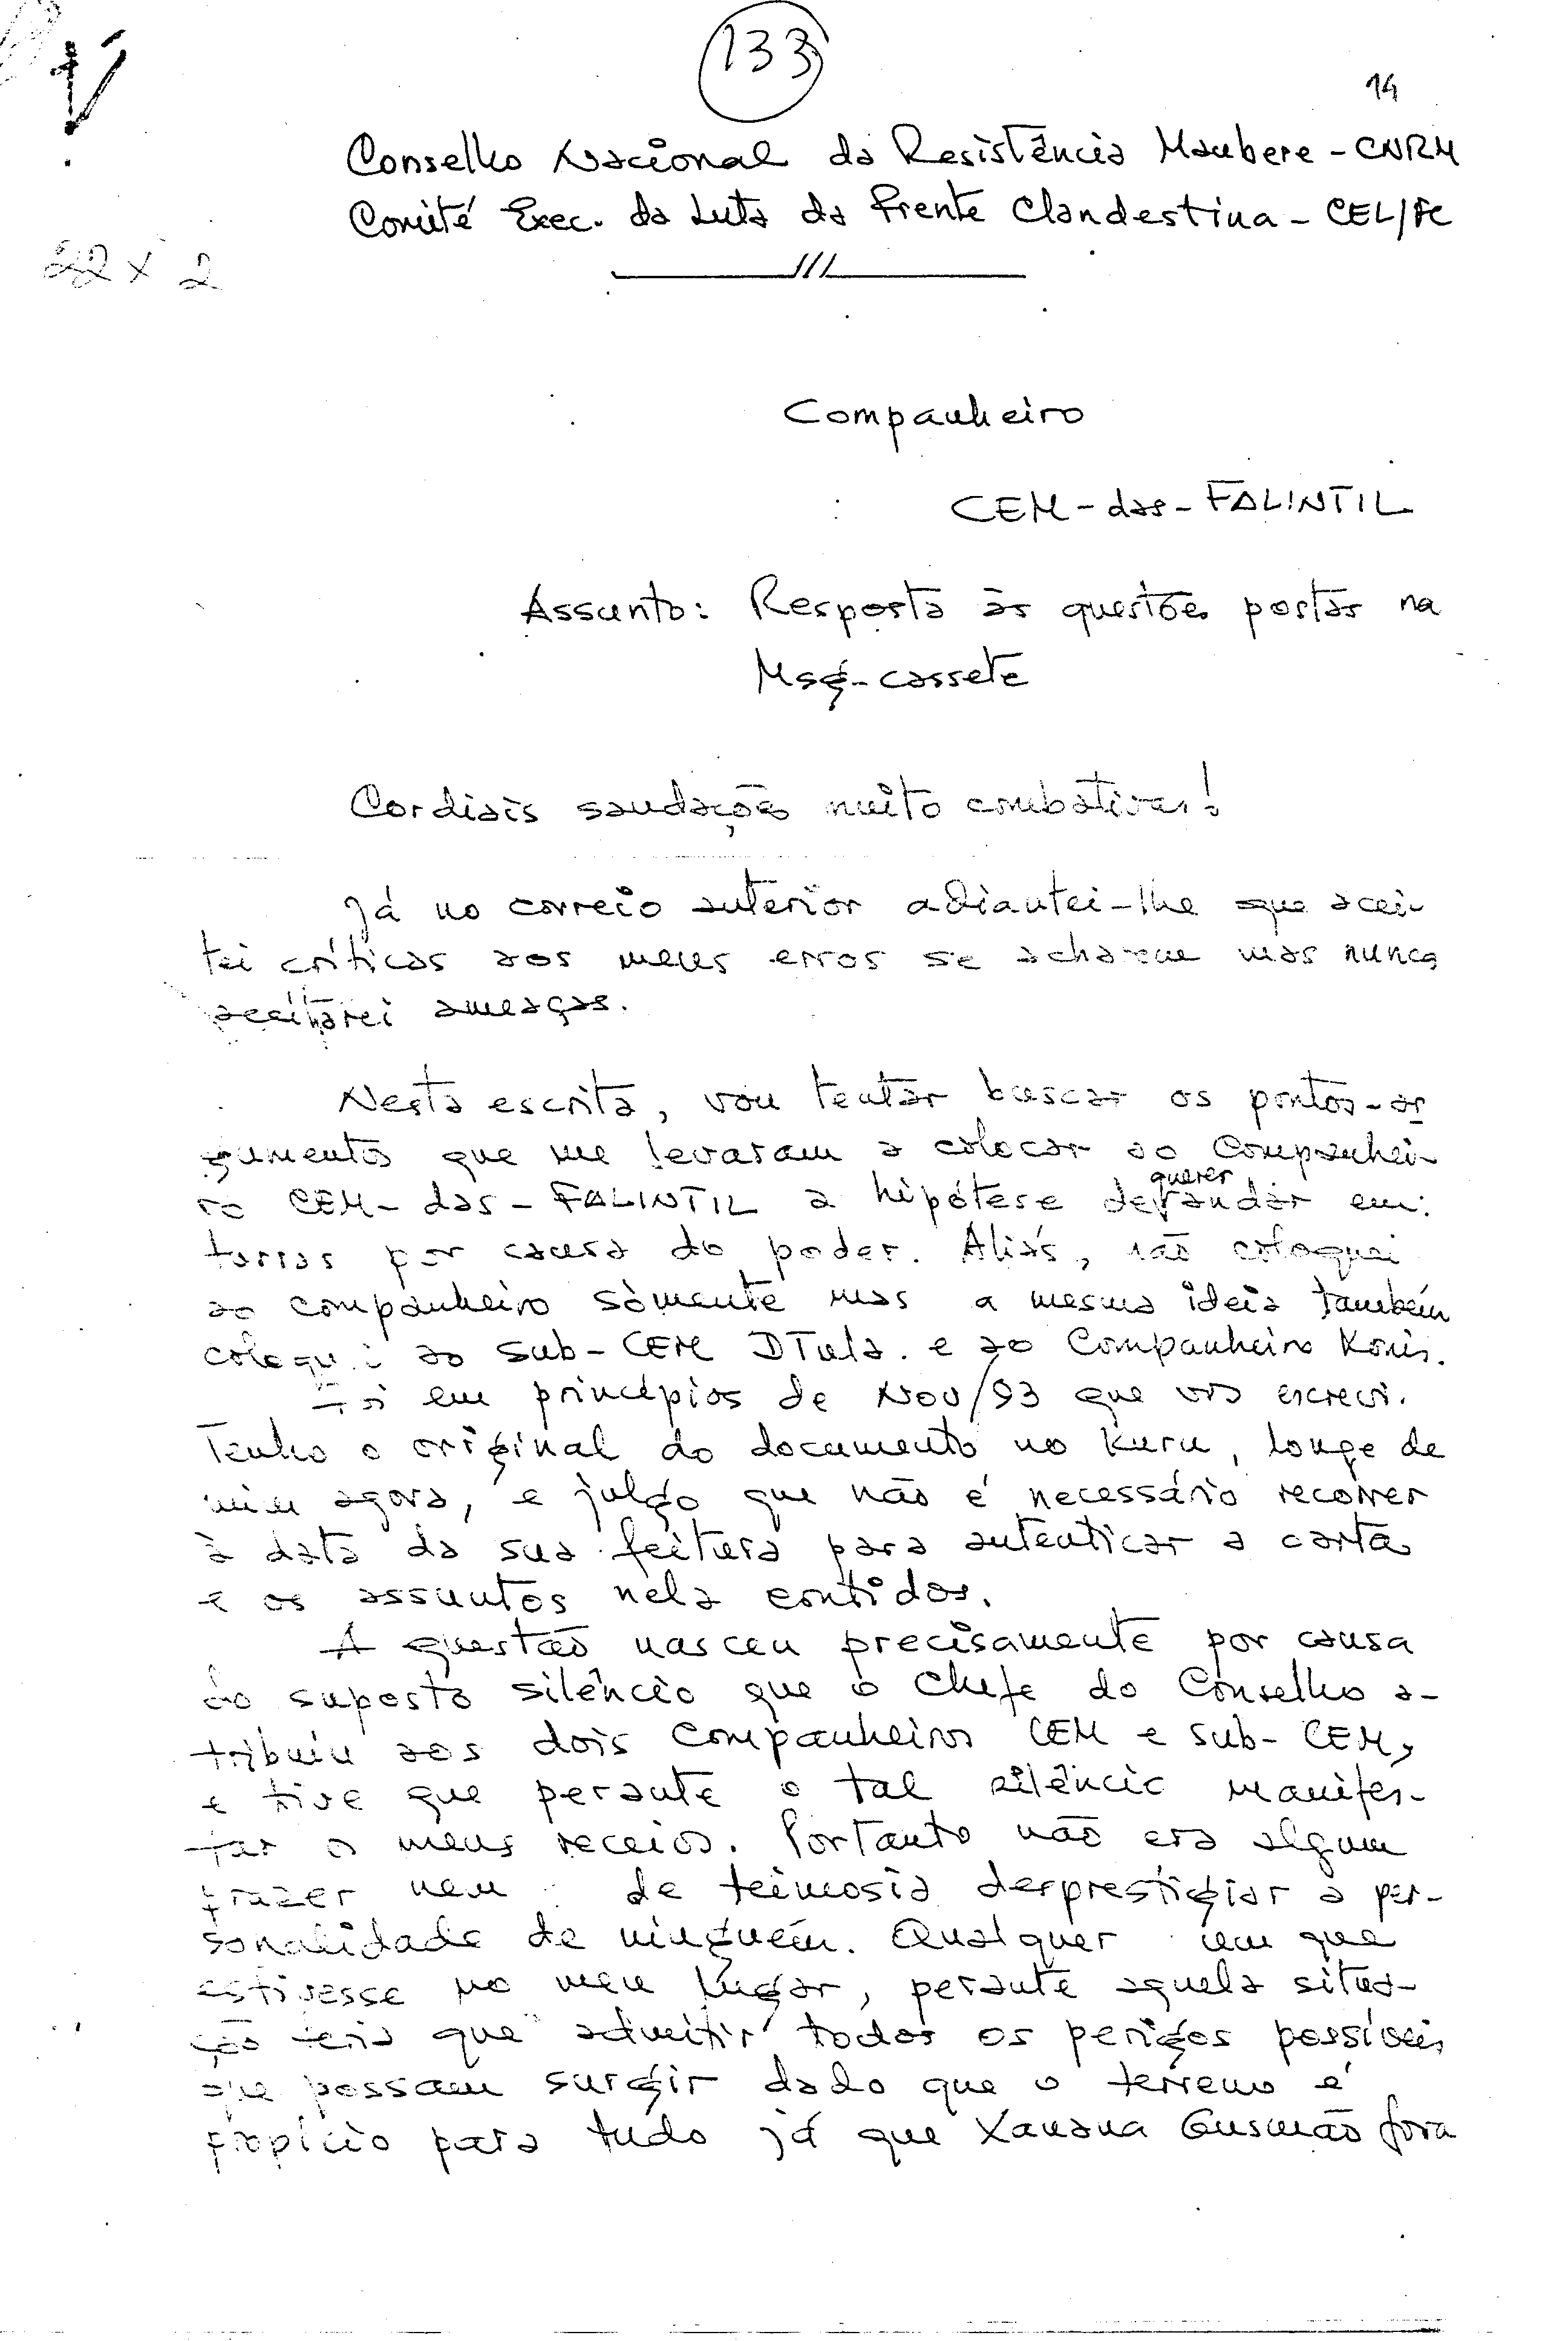 133
14
Conselho Nacional da Resistência Maubere - CNRM
Comité Exec. da Luta da Frente Clandestina - CEL/FC
22 x 2
Companheiro
CEM-das-FALINTIL
Assunto: Resposta às questões postas na
Msg-cassete
Cordiais saudações muito combativas!
Já no correio anterior adiantei-lhe que acei-
tei críticas aos meus erros se acharem mas nunca
aceitarei ameaças.
Nesta escrita, vou tentar buscar os pontos-ar
gumentos que me levaram a colocar ao Companhei-
querer
ro CEM-das-FALINTIL a hipótese de andar em
turras por causa do poder. Aliás, não coloquei
ao companheiro sòmente mas a mesma ideia também
coloquei ao Sub-CEM DTula. e ao Companheiro Konis.
Foi em princípios de Nov/93 que vos escrevi.
Tenho o original do documento no Kuru, longe de
mim agora, e julgo que não é necessário recorrer
à data da sua feitura para autenticar a carta
e os assuntos nela contidos.
A questão nasceu precisamente por causa
do suposto silêncio que o Chefe do Conselho a-
tribuiu aos dois Companheiros CEM e Sub-CEM,
e tive que perante o tal silêncio manifes-
tar os meus receios. Portanto não era algum
prazer nem de teimosia desprestigiar a per-
sonalidade de ninguém. Qualquer um que
estivesse no meu lugar, perante aquela situa-
ção teria que admitir todos os perigos possíveis
que possam surgir dado que o terreno é
propício para tudo já que Xanana Gusmão fora